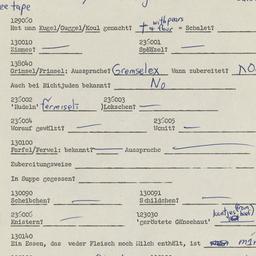 ee tape
129060 with pears
Hat man Kugel/Guggel/Koul gemacht? + + Schalet?
130010 236001
Zimmes? Spätzel?
138040
Grimsel/Primsel: Aussprache? Gremselex Wann zubereitet? NO
Auch bei Nichtjuden bekannt? No
236002 236003
'Nudeln' Fermisels )Lokschen?
236004 236005
Worauf gewälzt? Womit?
130100
Farfel/Ferwel: bekannt? Aussprache
Zubereitungsweise
In Suppe gegessen?
130090 130091
Scheibchen? Schildchen?
236006 123030
Knistern? 'geröstete Gänsehaut'
130140
Ein Essen, das weder Fleisch noch Milch enthält, ist